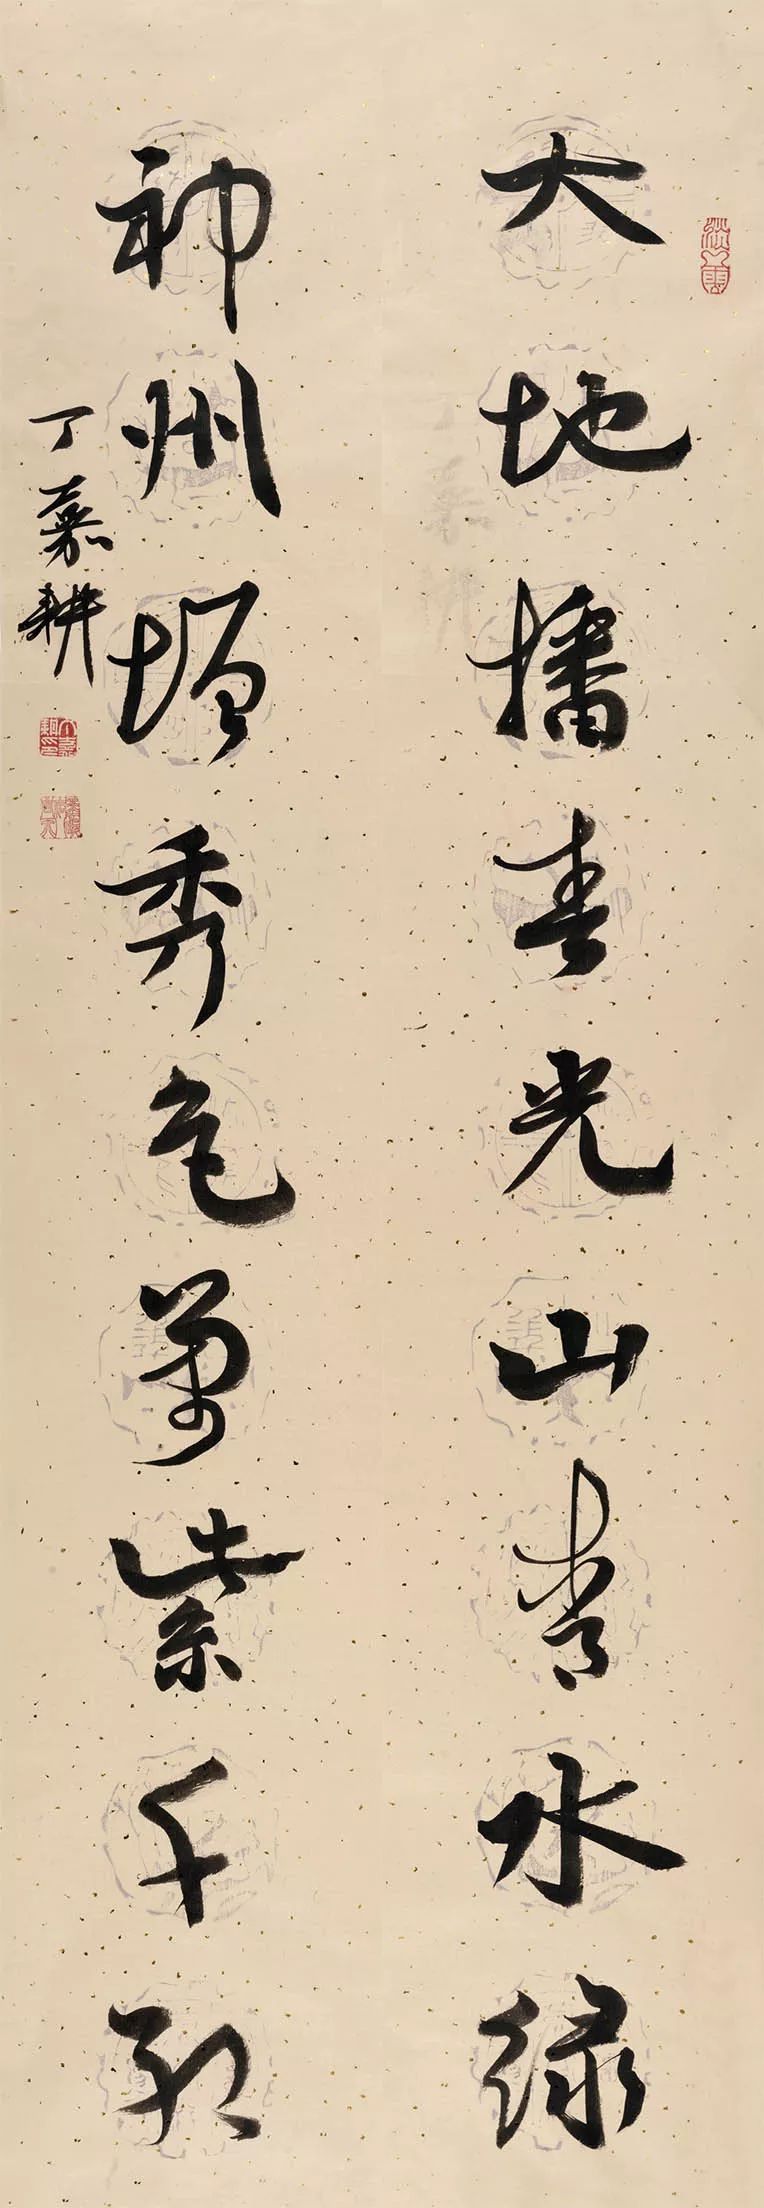 大地播春光山青水綠
神州增秀色萬紫千紅
丁嘉耕